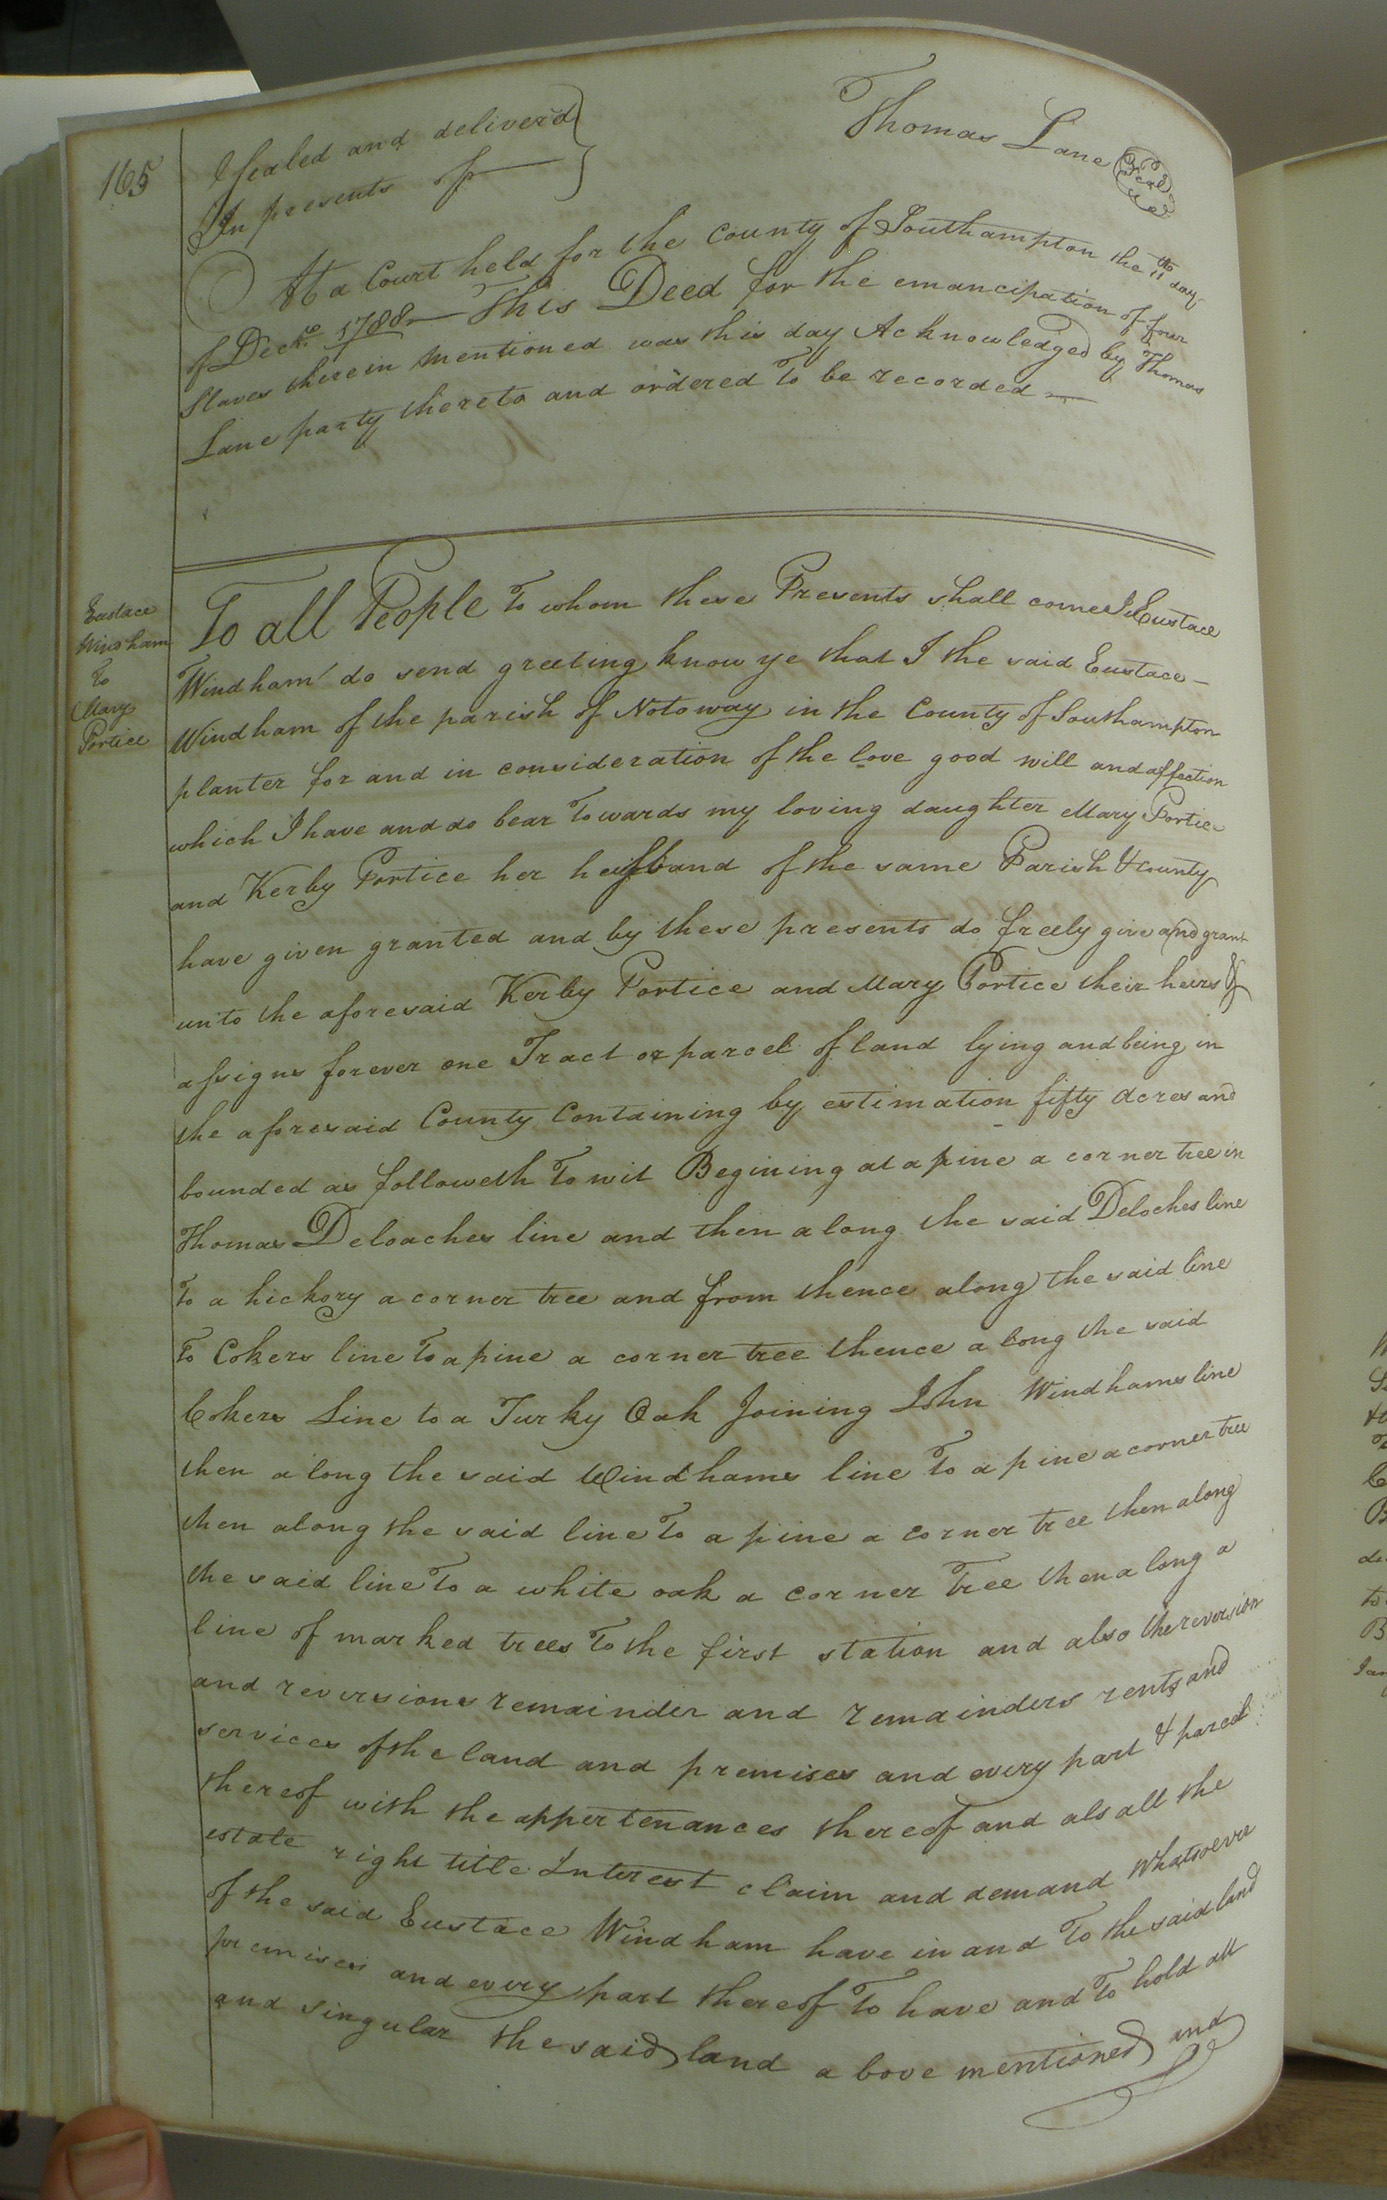 165
Sealed and deliver'd
In presents of
Thomas Lane Seal
At a Court held for the County of Southampton the 11th day
of Decr. 1788 — This Deed for the emancipation of four
Slaves therein mentioned was this day Acknowledged by Thomas
Lane party thereto and ordered To be recorded —
Eustace
Windham
To
Mary
Portice
To all People To whom these Presents shall come I Eustace
Windham do send greeting know ye that I the said Eustace
Windham of the parish of Notoway in the County of Southampton
planter for and in consideration of the love good will and affection
which I have and do bear Towards my loving daughter Mary Portice
and Kerby Portice her husband of the same Parish & County
have given granted and by these presents do freely give and grant
unto the aforesaid Kerby Portice and Mary Portice their heirs &
assigns forever one Tract or parcel of land lying and being in
the aforesaid County Containing by estimation fifty acres and
bounded as followeth To wit Begining at a pine a corner tree in
Thomas Deloaches line and then along the said Deloches line
To a hickory a corner tree and from thence along the said line
To Cokers line To a pine a corner tree thence along the said
Cokers Line to a Turky Oak Joining John Windhams line
then along the said Windhams line To a pine a corner tree
then along the said line To a pine a corner tree then along
the said line To a white oak a corner Tree then along a
line of marked trees To the first station and also the reversion
and reversions remainder and remainders rents and
services of the land and premises and every part & parcel
thereof with the appertenances thereof and als all the
estate right title Interest claim and demand Whatsoever
of the said Eustace Windham have in and To the said land
premises and every part thereof To have and To hold all
and singular the said land above mentioned and